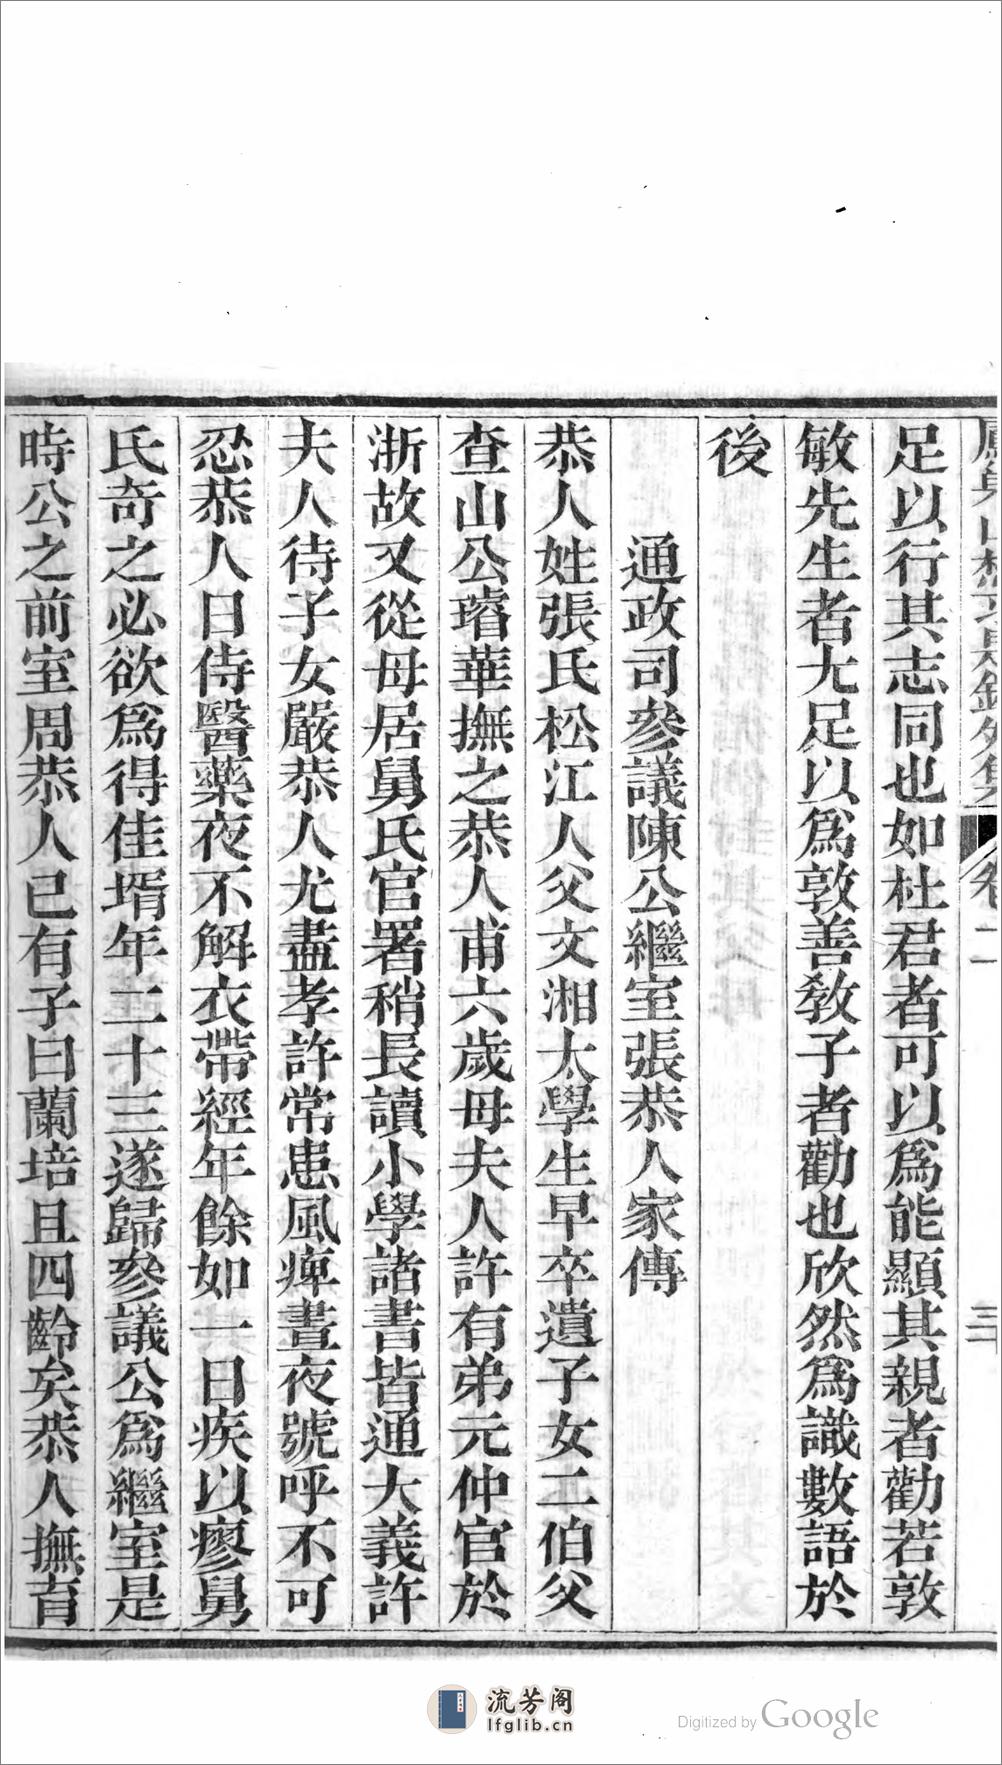 卷二
三
足以行其志同也如杜君者可以爲能顯其親者勸若敦
敏先生者尤足以爲敦善敎子者勸也欣然爲識數語於
後
通政司參議陳公繼室張恭人家傳
恭人姓張氏松江人父文湘太學生早卒遺子女二伯父
查山公璿華撫之恭人甫六歲母夫人許有弟元仲官於
浙故又從母居舅氏官署稍長讀小學諸書皆通大義許
夫人待子女嚴恭人尤盡孝許常患風痺晝夜號呼不可
忍恭人日侍醫藥夜不解衣帶經年餘如一日疾以瘳舅
氏奇之必欲爲得佳壻年二十三遂歸參議公爲繼室是
時公之前室周恭人已有子曰蘭培且四齡矣恭人撫育
流芳阁
lfglib.cn
Digitized by Google